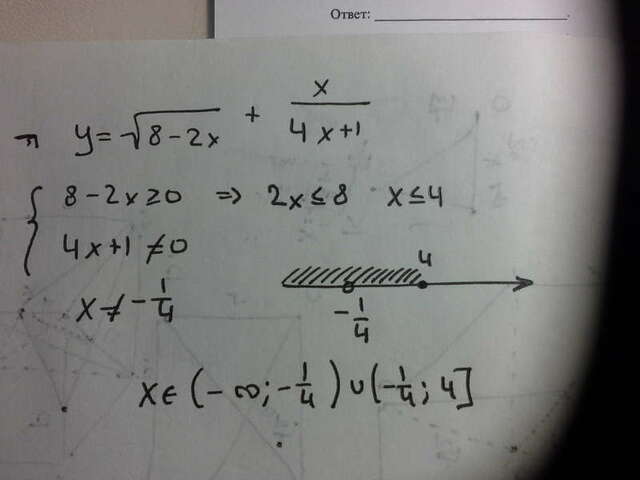 Ответ: ____________________.
л) y = √(8-2x) + x/(4x+1)
{ 8-2x ≥ 0 => 2x ≤ 8 x ≤ 4
4x+1 ≠ 0
4
x ≠ -1/4
-1/4
x ∈ (-∞; -1/4) ∪ (-1/4; 4]